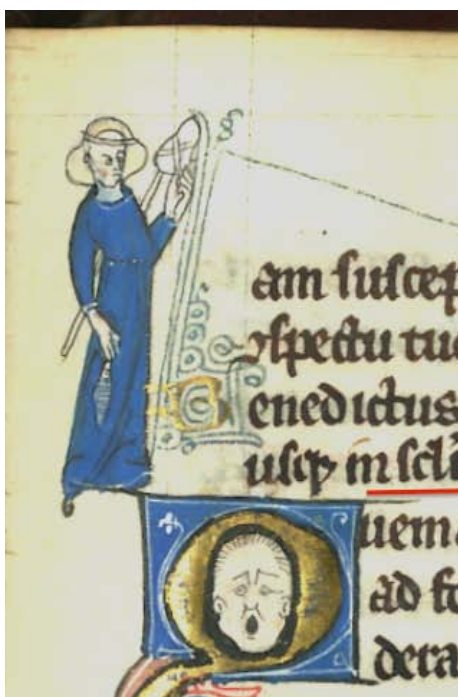 am suscep
ꝯspectu tuo
Benedictus
usqꝫ in scl̄
Quema
ad fo
dera